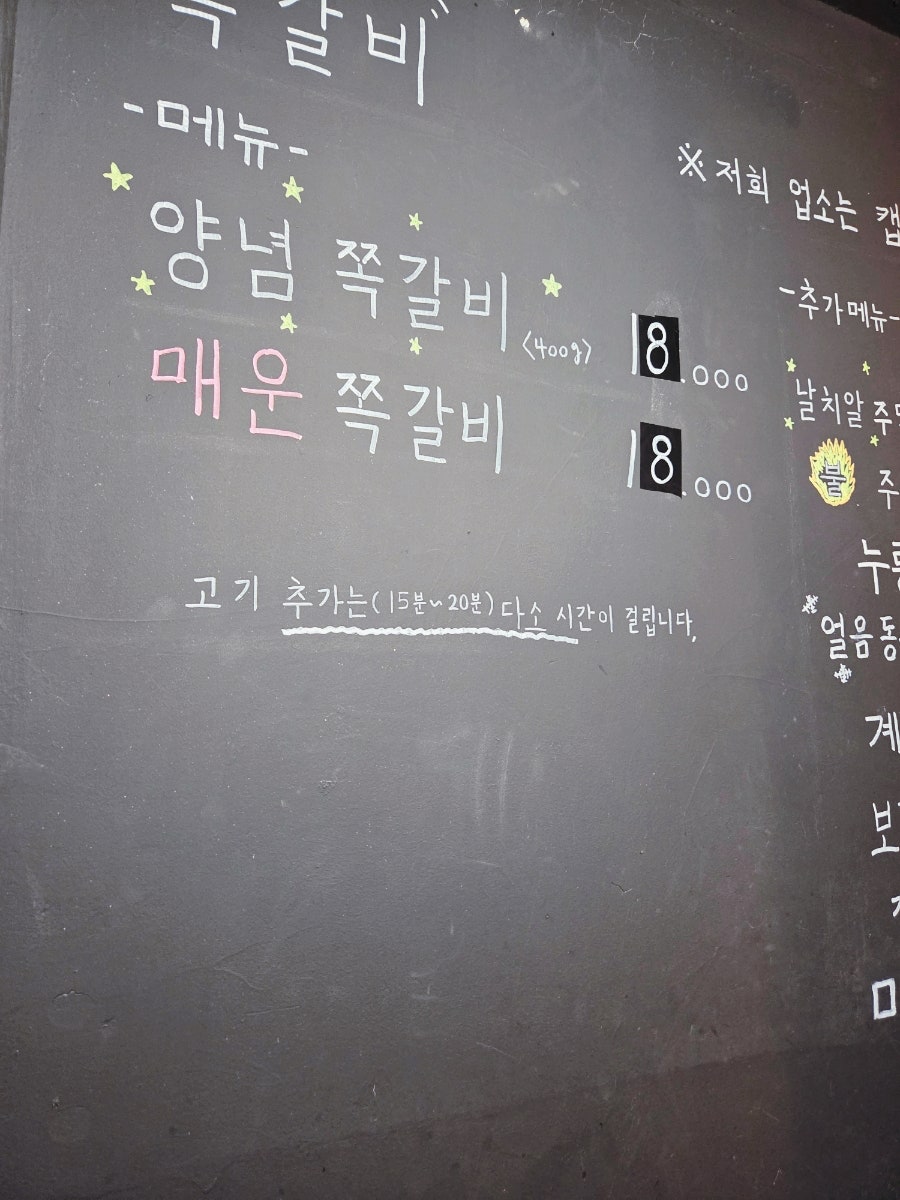 쪽갈비"
-메뉴-
양념 쪽갈비 <400g> 18.000
매운 쪽갈비 18.000
고기 추가는(15분~20분)다소 시간이 걸립니다.
※저희 업소는
-추가메뉴-
날치알
불
얼음